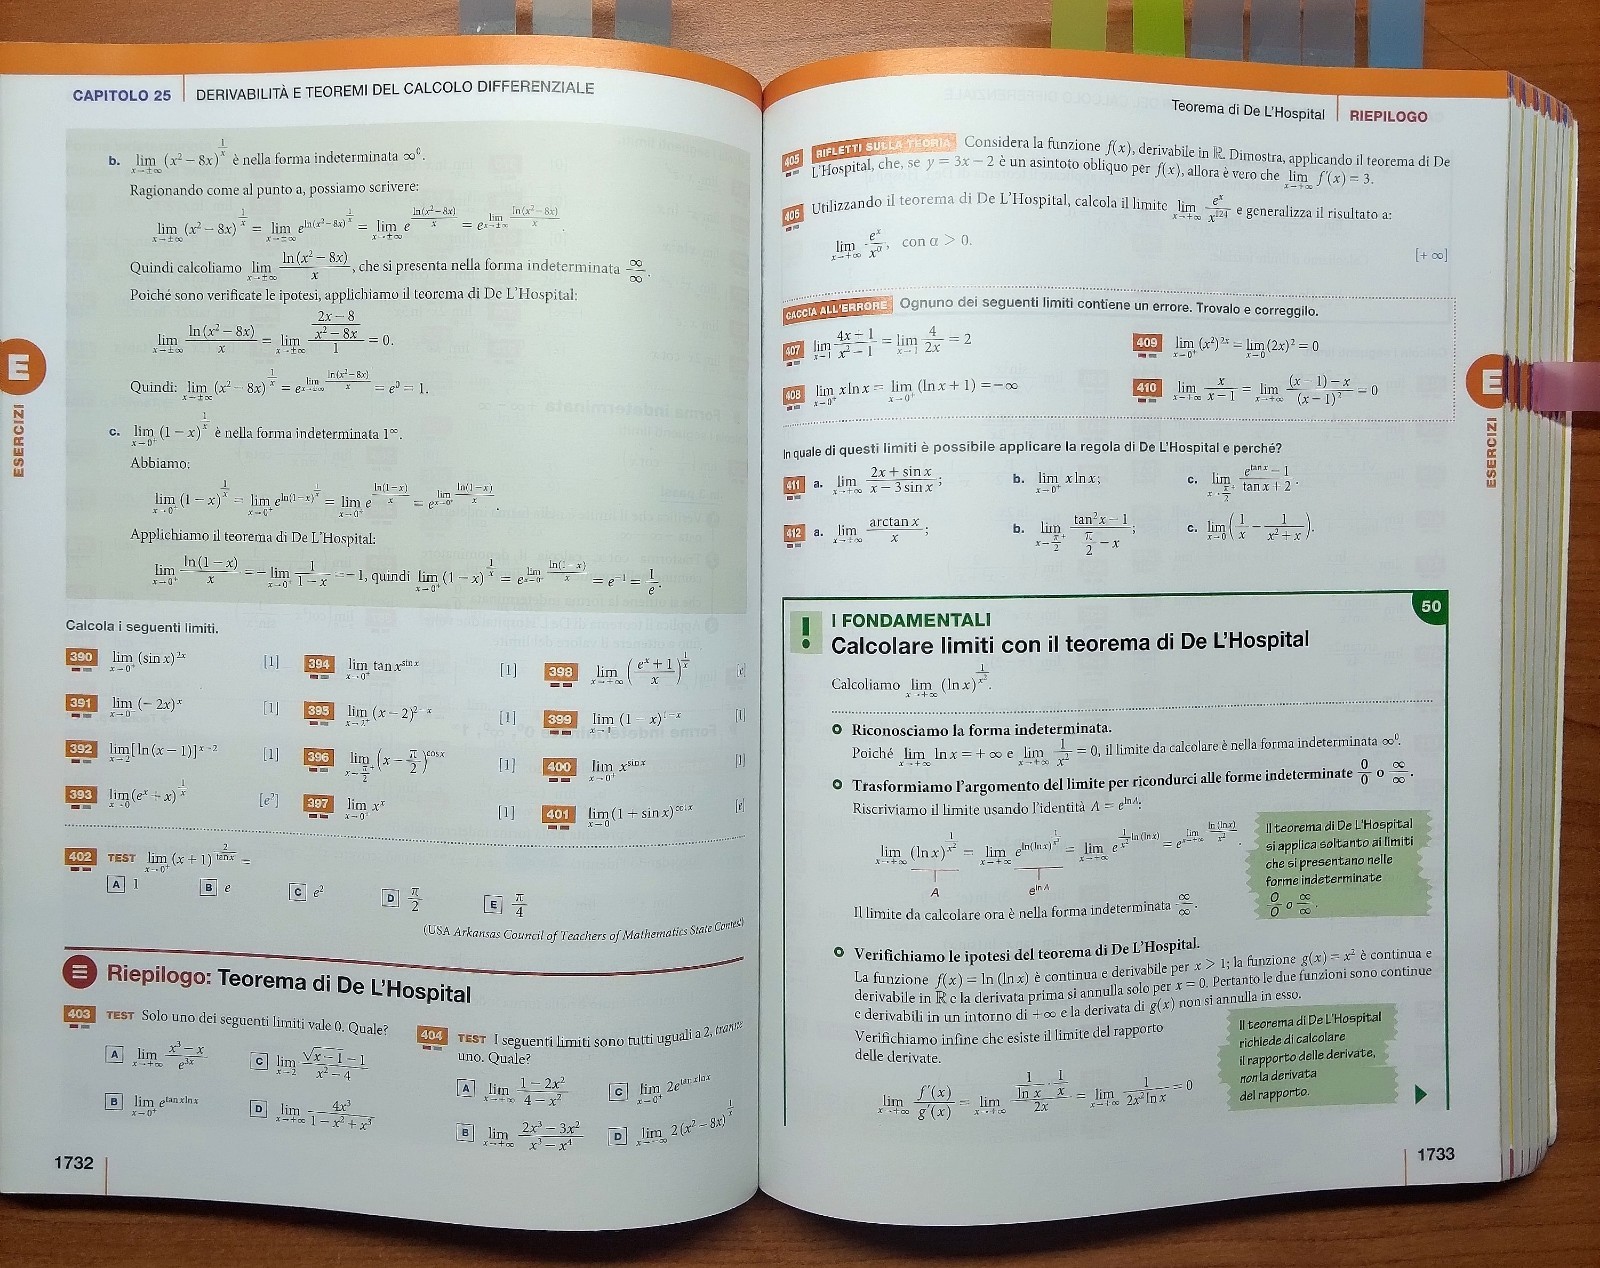 CAPITOLO 25 | DERIVABILITÀ E TEOREMI DEL CALCOLO DIFFERENZIALE
b. lim x→±∞ (x² − 8x)^(1/x) è nella forma indeterminata ∞⁰.
Ragionando come al punto a, possiamo scrivere:
lim x→±∞ (x² − 8x)^(1/x) = lim x→±∞ e^(ln(x²−8x)^(1/x)) = lim x→±∞ e^(ln(x²−8x)/x) = e^(lim x→±∞ ln(x²−8x)/x).
Quindi calcoliamo lim x→±∞ ln(x² − 8x)/x, che si presenta nella forma indeterminata ∞/∞.
Poiché sono verificate le ipotesi, applichiamo il teorema di De L'Hospital:
lim x→±∞ ln(x² − 8x)/x = lim x→±∞ ((2x − 8)/(x² − 8x))/1 = 0.
Quindi: lim x→±∞ (x² − 8x)^(1/x) = e^(lim x→±∞ ln(x²−8x)/x) = e⁰ = 1.
c. lim x→0⁺ (1 − x)^(1/x) è nella forma indeterminata 1^∞.
Abbiamo:
lim x→0⁺ (1 − x)^(1/x) = lim x→0⁺ e^(ln(1−x)^(1/x)) = lim x→0⁺ e^(ln(1−x)/x) = e^(lim x→0⁺ ln(1−x)/x).
Applichiamo il teorema di De L'Hospital:
lim x→0⁺ ln(1 − x)/x = − lim x→0⁺ 1/(1 − x) = −1, quindi lim x→0⁺ (1 − x)^(1/x) = e^(lim x→0⁺ ln(1−x)/x) = e⁻¹ = 1/e.
Calcola i seguenti limiti.
390 lim x→0⁺ (sin x)^(2x) [1]
391 lim x→0⁻ (− 2x)^x [1]
392 lim x→2 [ln(x − 1)]^(x−2) [1]
393 lim x→0 (e^x + x)^(1/x) [e²]
394 lim x→0⁺ tan x^(sin x) [1]
395 lim x→2⁺ (x − 2)^(2−x) [1]
396 lim x→π/2⁺ (x − π/2)^(cos x) [1]
397 lim x→0⁺ x^x [1]
398 lim x→+∞ ((e^x + 1)/x)^(1/x) [e]
399 lim x→1⁻ (1 − x)^(1−x) [1]
400 lim x→0⁺ x^(sin x) [1]
401 lim x→0 (1 + sin x)^(cot x) [e]
402 TEST lim x→0⁺ (x + 1)^(2/tan x) =
A 1 B e C e² D π/2 E π/4
(USA Arkansas Council of Teachers of Mathematics State Contest)
Riepilogo: Teorema di De L'Hospital
403 TEST Solo uno dei seguenti limiti vale 0. Quale?
A lim x→+∞ (x³ − x)/e^(3x)
C lim x→2 (√(x − 1) − 1)/(x² − 4)
B lim x→0⁺ e^(tan x ln x)
D lim x→+∞ 4x³/(1 − x² + x³)
404 TEST I seguenti limiti sono tutti uguali a 2, tranne
uno. Quale?
A lim x→+∞ (1 − 2x²)/(4 − x²)
C lim x→0⁺ 2e^(tan x ln x)
B lim x→+∞ (2x³ − 3x²)/(x³ − x⁴)
D lim 2(x² − 8x)^(1/x)
1732
Teorema di De L'Hospital | RIEPILOGO
405 RIFLETTI SULLA TEORIA Considera la funzione f(x), derivabile in ℝ. Dimostra, applicando il teorema di De
L'Hospital, che, se y = 3x − 2 è un asintoto obliquo per f(x), allora è vero che lim x→+∞ f′(x) = 3.
406 Utilizzando il teorema di De L'Hospital, calcola il limite lim x→+∞ e^x/x^124 e generalizza il risultato a:
lim x→+∞ e^x/x^α, con α > 0. [+ ∞]
CACCIA ALL'ERRORE Ognuno dei seguenti limiti contiene un errore. Trovalo e correggilo.
407 lim x→1 (4x − 1)/(x² − 1) = lim x→1 4/2x = 2
408 lim x→0⁺ x ln x = lim x→0⁺ (ln x + 1) = −∞
409 lim x→0⁺ (x²)^(2x) = lim x→0 (2x)² = 0
410 lim x→+∞ x/(x − 1) = lim x→+∞ ((x − 1) − x)/(x − 1)² = 0
In quale di questi limiti è possibile applicare la regola di De L'Hospital e perché?
411 a. lim x→+∞ (2x + sin x)/(x − 3 sin x); b. lim x→0⁺ x ln x; c. lim x→π/2⁻ (e^(tan x) − 1)/(tan x + 2).
412 a. lim x→+∞ arctan x/x; b. lim x→π/2⁺ (tan² x − 1)/(π/2 − x); c. lim x→0 (1/x − 1/(x² + x)).
50
! I FONDAMENTALI
Calcolare limiti con il teorema di De L'Hospital
Calcoliamo lim x→+∞ (ln x)^(1/x²).
Riconosciamo la forma indeterminata.
Poiché lim x→+∞ ln x = + ∞ e lim x→+∞ 1/x² = 0, il limite da calcolare è nella forma indeterminata ∞⁰.
Trasformiamo l'argomento del limite per ricondurci alle forme indeterminate 0/0 o ∞/∞.
Riscriviamo il limite usando l'identità A = e^(ln A):
lim x→+∞ (ln x)^(1/x²) = lim x→+∞ e^(ln(ln x)^(1/x²)) = lim x→+∞ e^((1/x²) ln(ln x)) = e^(lim x→+∞ ln(ln x)/x²).
A e^(ln A)
Il limite da calcolare ora è nella forma indeterminata ∞/∞.
Il teorema di De L'Hospital
si applica soltanto ai limiti
che si presentano nelle
forme indeterminate
0/0 o ∞/∞.
Verifichiamo le ipotesi del teorema di De L'Hospital.
La funzione f(x) = ln (ln x) è continua e derivabile per x > 1; la funzione g(x) = x² è continua e
derivabile in ℝ e la derivata prima si annulla solo per x = 0. Pertanto le due funzioni sono continue
e derivabili in un intorno di +∞ e la derivata di g(x) non si annulla in esso.
Verifichiamo infine che esiste il limite del rapporto
delle derivate.
lim x→+∞ f′(x)/g′(x) = lim x→+∞ (1/ln x · 1/x)/2x = lim x→+∞ 1/(2x² ln x) = 0
Il teorema di De L'Hospital
richiede di calcolare
il rapporto delle derivate,
non la derivata
del rapporto.
1733
E
ESERCIZI
E
ESERCIZI